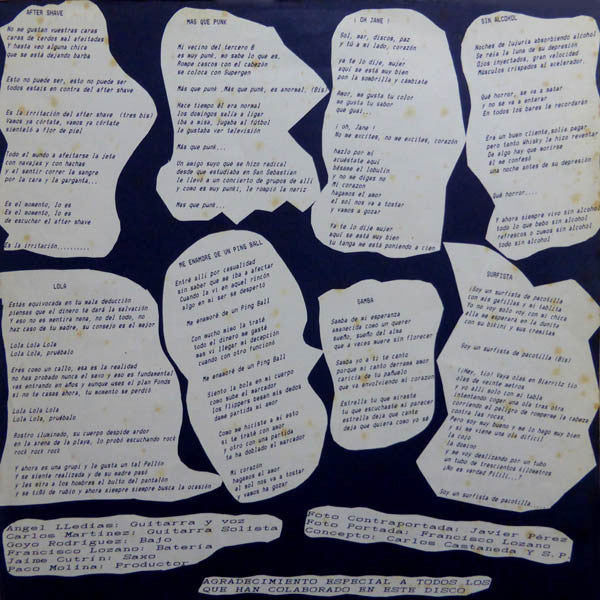 AFTER SHAVE
No me gustan vuestras caras
caras de cerdos mal afeitadas
Y hasta veo alguna chica
que se está dejando barba
Esto no puede ser, esto no puede ser
todos estais en contra del after shave
Es la irritación del after shave (tres bis)
Vamos ya córtate, vamos ya córtate
sientelo a flor de piel
Todo el mundo a afeitarse la jeta
con navajas y con hachas
y al sentir correr la sangre
por la cara y la garganta...
Es el momento, lo es
Es el momento, lo es
de escuchar el after shave
Es la irritación.........
MAS QUE PUNK
Mi vecino del tercero B
es muy punk, no sabe lo que es.
Rompe cascos con el cabezón
se coloca con Supergen
Más que punk, Más que punk, es anormal, (Bis)
Hace tiempo él era normal
los domingos salía a ligar
iba a misa, jugaba al fútbol
le gustaba ver televisión
Más que punk...
Un amigo suyo que se hizo radical
desde que estudiaba en San Sebastian
le llevó a un concierto de grupos de allí
y como es muy punki, le rompió la nariz
Más que punk...
¡ OH JANE !
Sol, mar, discos, paz
y tú a mi lado, corazón
ya te lo dije, muyer
aquí se está muy bien
pon la sombrilla y cámbiate
Amor, me gusta tu color
me gusta tu sabor
que guai...
¡ oh, Jane !
No me excites, no me excites, corazón
hazlo por mí
acuéstate aquí
bésame el lobulín
y no me digas no
Mi corazón
hagamos el amor
el sol nos va a tostar
y vamos a gozar
Ya te lo dije mujer
aquí se está muy bien
tu tanga me está poniendo a cien
SIN ALCOHOL
Noches de lujuria absorbiendo alcohol
Se reía la luna de su depresión
Ojos inyectados, gran velocidad
Músculos crispados al acelerador.
Qué horror, se va a matar
y no se va a enterar
En todos los bares le recordarán
Era un buen cliente, solía pagar
pero tanto Whisky la hizo reventar
De algo hay que morirse
él se confesó
una noche antes de su depresión
Qué horror....
Y ahora siempre vivo sin alcohol
todo lo que bebo sin alcohol
refrescos o zumos sin alcohol
todo sin alcohol
LOLA
Estás equivocada en tu mala deducción
piensas que el dinero te dará la salvación
Y eso no es sentirá nena, no del todo, no
haz caso de tu madre, su consejo es el mejor
Lola Lola Lola
Lola Lola, pruébalo
Eres como un callo, esa es la realidad
no has probado nunca el sexo y eso es fundamental
vas entrando en años y aunque uses el plan Ponds
si no te casas ahora, tu momento se perdió
Lola Lola Lola
Lola Lola, pruébalo
Rostro iluminado, su cuerpo despide ardor
en la arena de la playa, lo probó escuchando rock
rock rock rock
Y ahora es una grupi y le gusta un tal Pellín
Y se siente realizada y de su madre pasó
y les mira a los hombres el bulto del pantalón
y se tiñó de rubio y ahora siempre siempre busca la ocasión
ME ENAMORE DE UN PING BALL
Entré allí por casualidad
sin saber que se iba a afectar
Cuando la vi en aquel rincón
algo en mi ser se despertó
Me enamoré de un Ping Ball
Con mucho mimo la traté
todo el dinero me gasté
mas vi llegar mi decepción
cuando con otro funcionó
Me enamoré de un Ping Ball
Siento la bola en mi cuerpo
como sube el marcador
los flippers besan mis dedos
dame partida mi amor
Como me hiciste a mi esto
si te traté con amor
y otro con una partida
te ha doblado el marcador
Mi corazón
hagamos el amor
el sol nos va a tostar
y vamos ha gozar
SAMBA
Samba de mi esperanza
amanecida como un querer
sueño, sueño del alma
que a veces muere sin florecer
Samba yo a ti te canto
porque mi canto derrama amor
caricia de tu pañuelo
que va envolviendo mi corazón
Estrella tu que miraste
tu que escuchaste mi parecer
estrella deja que cante
deja que quiera como yo sé
SURFISTA
¡Soy un surfista de pacotilla
con mis gafillas y mi tablita
Yo no voy solo voy con mi chica
ella me esperara en la dunita
con su bikini y sus cremitas
Soy un surfista de pacotilla (Bis)
olas de veinte metros
y yo allí solo con mi tabla
intentando coger una ola tras otra
corriendo el peligro de romperme la cabeza
contra las rocas
Pero soy muy bueno y me lo hago muy bien
y si me viene una ola difícil
la cojo
la domino
y me voy deslizando por un tubo
un tubo de trescientos kilometros
¡No es verdad Pilili...!
Soy un surfista de pacotilla.....
Angel LLedias: Guitarra y voz
Carlos Martínez: Guitarra Solista
Goyo Rodríguez: Bajo
Francisco Lozano: Batería
Jaime Cutrín: Saxo
Paco Molina: Productor
Foto Contraportada: Javier Pérez
Foto Portada: Francisco Lozano
Concepto: Carlos Castaneda Y S.P.
AGRADECIMIENTO ESPECIAL A TODOS LOS
QUE HAN COLABORADO EN ESTE DISCO